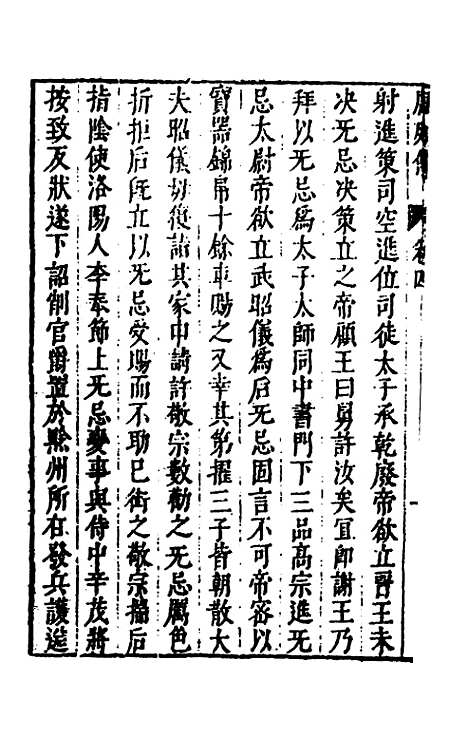 射進策司空進位司徒太子承乾廢帝欲立晉王未
决无忌决策立之帝顧王曰舅許汝矣宜即謝王乃
拜以无忌爲太子太師同中書門下三品高宗進无
忌太尉帝欲立武昭儀爲后无忌固言不可帝宻以
寳器錦帛十餘車賜之又幸其第擢三子皆朝散大
夫昭儀母復詣其家申請許敬宗數勸之无忌厲色
折拒后旣立以无忌受賜而不助已銜之敬宗揣后
指陰使洛陽人李奉節上无忌變事與侍中辛茂將
按致反狀遂下詔削官爵置於黔州所在發兵護送
卷四